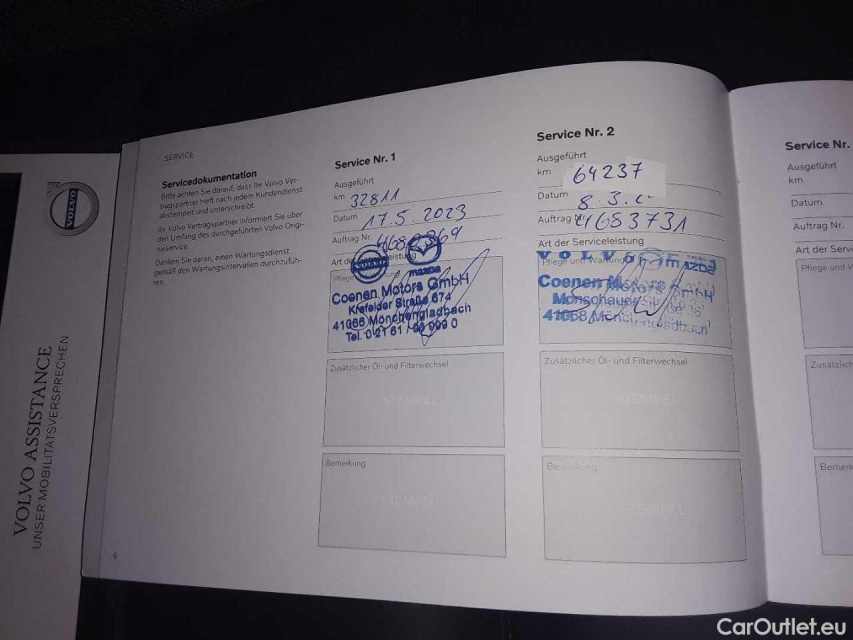 VOLVO
VOLVO ASSISTANCE
UNSER MOBILITÄTSVERSPRECHEN
SERVICE
Servicedokumentation
Bitte achten Sie darauf, dass Ihr Volvo Ver-
tragspartner Heft nach jedem Kundendienst
abstempelt und unterschreibt.
Ihr Volvo Vertragspartner informiert Sie über
den Umfang des durchgeführten Volvo Origi-
nalservice.
Denken Sie daran, einen Wartungsdienst
gemäß den Wartungsintervallen durchzufüh-
ren.
4
Service Nr. 1
Ausgeführt
km 32811
Datum 17.5.2023
Auftrag Nr.
Art der Serviceleistung
Pflege und
VOLVO mazda
Coenen Motors GmbH
Krefelder Straße 674
41066 Mönchengladbach
Tel. 0 21 61
Zusätzlicher Öl- und Filterwechsel
STEMPEL
Bemerkung
STEMPEL
Service Nr. 2
Ausgeführt
km 64237
Datum 8.3.
Auftrag Nr. 4683731
Art der Serviceleistung
Pflege und Wartung
VOLVO mazda
Coenen Motors GmbH
Monschauer Straße
41068 Mönchengladbach
Zusätzlicher Öl- und Filterwechsel
STEMPEL
Bemerkung
STEMPEL
Service Nr.
Ausgeführt
km
Datum
Auftrag Nr.
Art der Servi
Pflege und W
Zusätzlich
Bemerk
CarOutlet.eu